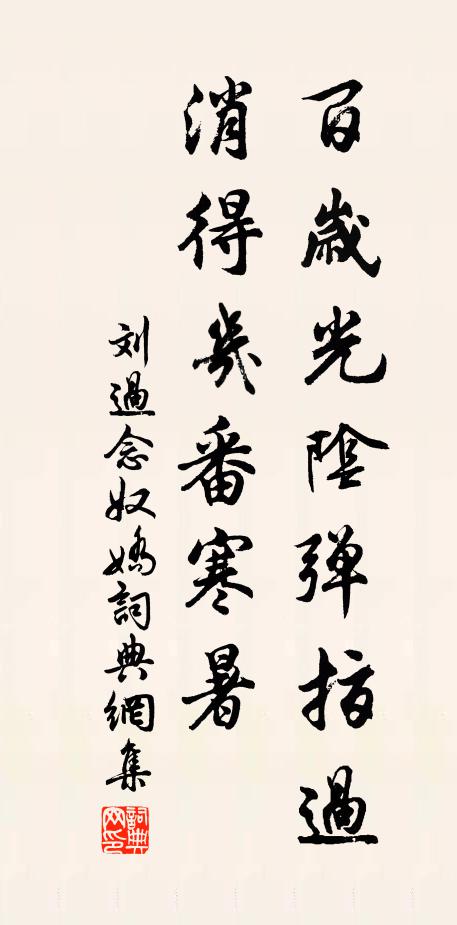 百歲光陰弹指過
消得幾番寒暑
刘過念奴嬌詞典網集
詞典網印